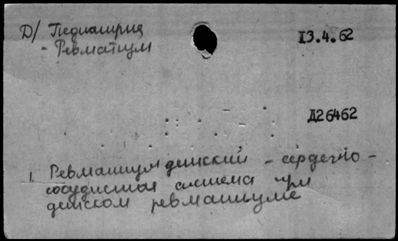 Д/ Педиатрия
- Ревматизм
13.4.62
Д26462
1 Ревматизм детский - сердечно-
сосудистая система при
детском ревматизме